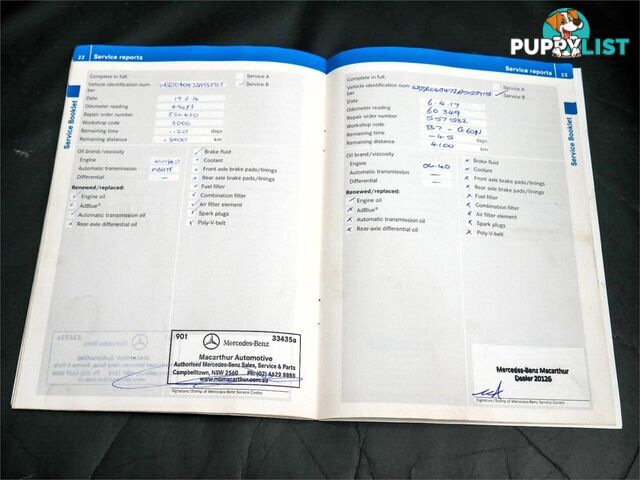 PUPPYLIST
22 Service reports
Service Booklet
Complete in full:
Service A
Vehicle identification num-
ber
Service B
Date 19.2.16
Odometer reading
Repair order number 550430
Workshop code
Remaining time days
Remaining distance km
Oil brand/viscosity
Engine
Automatic transmission
Differential –
Renewed/replaced:
✓ Engine oil
AdBlue®
Automatic transmission oil
Rear-axle differential oil
Brake fluid
Coolant
Front axle brake pads/linings
Rear axle brake pads/linings
Fuel filter
Combination filter
Air filter element
Spark plugs
Poly-V-belt
901 33435a
Mercedes-Benz
Macarthur Automotive
Authorised Mercedes-Benz Sales, Service & Parts
Campbelltown, NSW 2560 Ph: (02) 4629 8888
www.mbmacarthur.com.au
Signature/Stamp of Mercedes-Benz Service Centre
Service reports 23
Service Booklet
Complete in full:
Service A
Vehicle identification num-
ber
Service B
Date 6.4.17
Odometer reading 60349
Repair order number 557582
Workshop code
Remaining time -45 days
Remaining distance 4100 km
Oil brand/viscosity
Engine
Automatic transmission –
Differential –
Renewed/replaced:
✓ Engine oil
x AdBlue®
x Automatic transmission oil
x Rear-axle differential oil
x Brake fluid
x Coolant
x Front axle brake pads/linings
x Rear axle brake pads/linings
x Fuel filter
x Combination filter
x Air filter element
x Spark plugs
x Poly-V-belt
Mercedes-Benz Macarthur
Dealer 20126
Signature/Stamp of Mercedes-Benz Service Centre